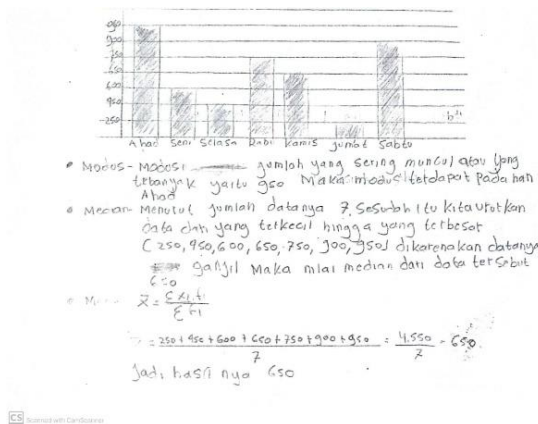 950
900
750
650
600
450
250
Ahad Seni Selasa Rabi Kamis Jumat Sabtu
• Modus - Modus: jumlah yang sering muncul atau yang
terbanyak yaitu 950 Maka modus terdapat pada hari
Ahad
• Median - Menurut jumlah datanya 7, sesudah itu kita urutkan
data dari yang terkecil hingga yang terbesar
(250, 450, 600, 650, 750, 900, 950) dikarenakan datanya
ganjil Maka nilai median dari data tersebut
650
x̄ = Σxi.fi
Σfi
= 250 + 450 + 600 + 650 + 750 + 900 + 950 = 4.550 = 650
7 7
Jadi hasil nya 650
CS Scanned with CamScanner